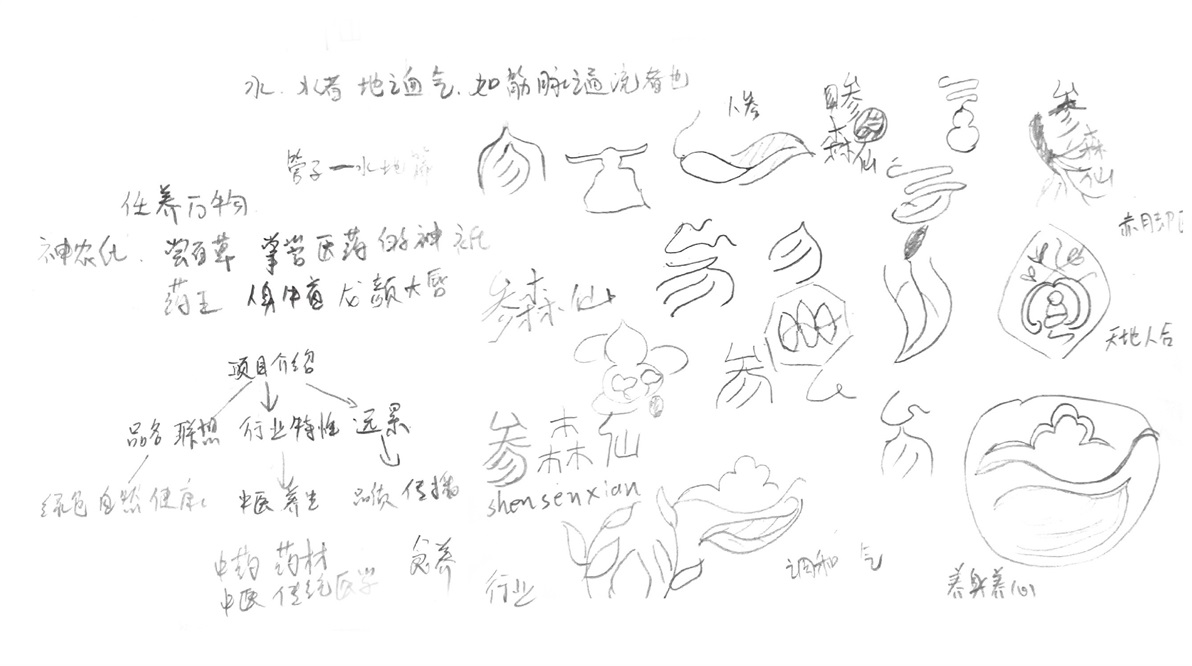 水.水者地之血气.如筋脉之通流者也
管子一水地篇
任养万物
神农氏.尝百草 掌管医药的神祇
药王 人身牛首 龙颜大唇
人参
参森仙
参森仙
参森仙
天地人合
项目介绍
品名联想 行业特性 远景
绿色自然健康 中医养生 品质传播
参森仙
shensenxian
中药 药材 食养
中医 传统医学
行业
调和 气
养身养心